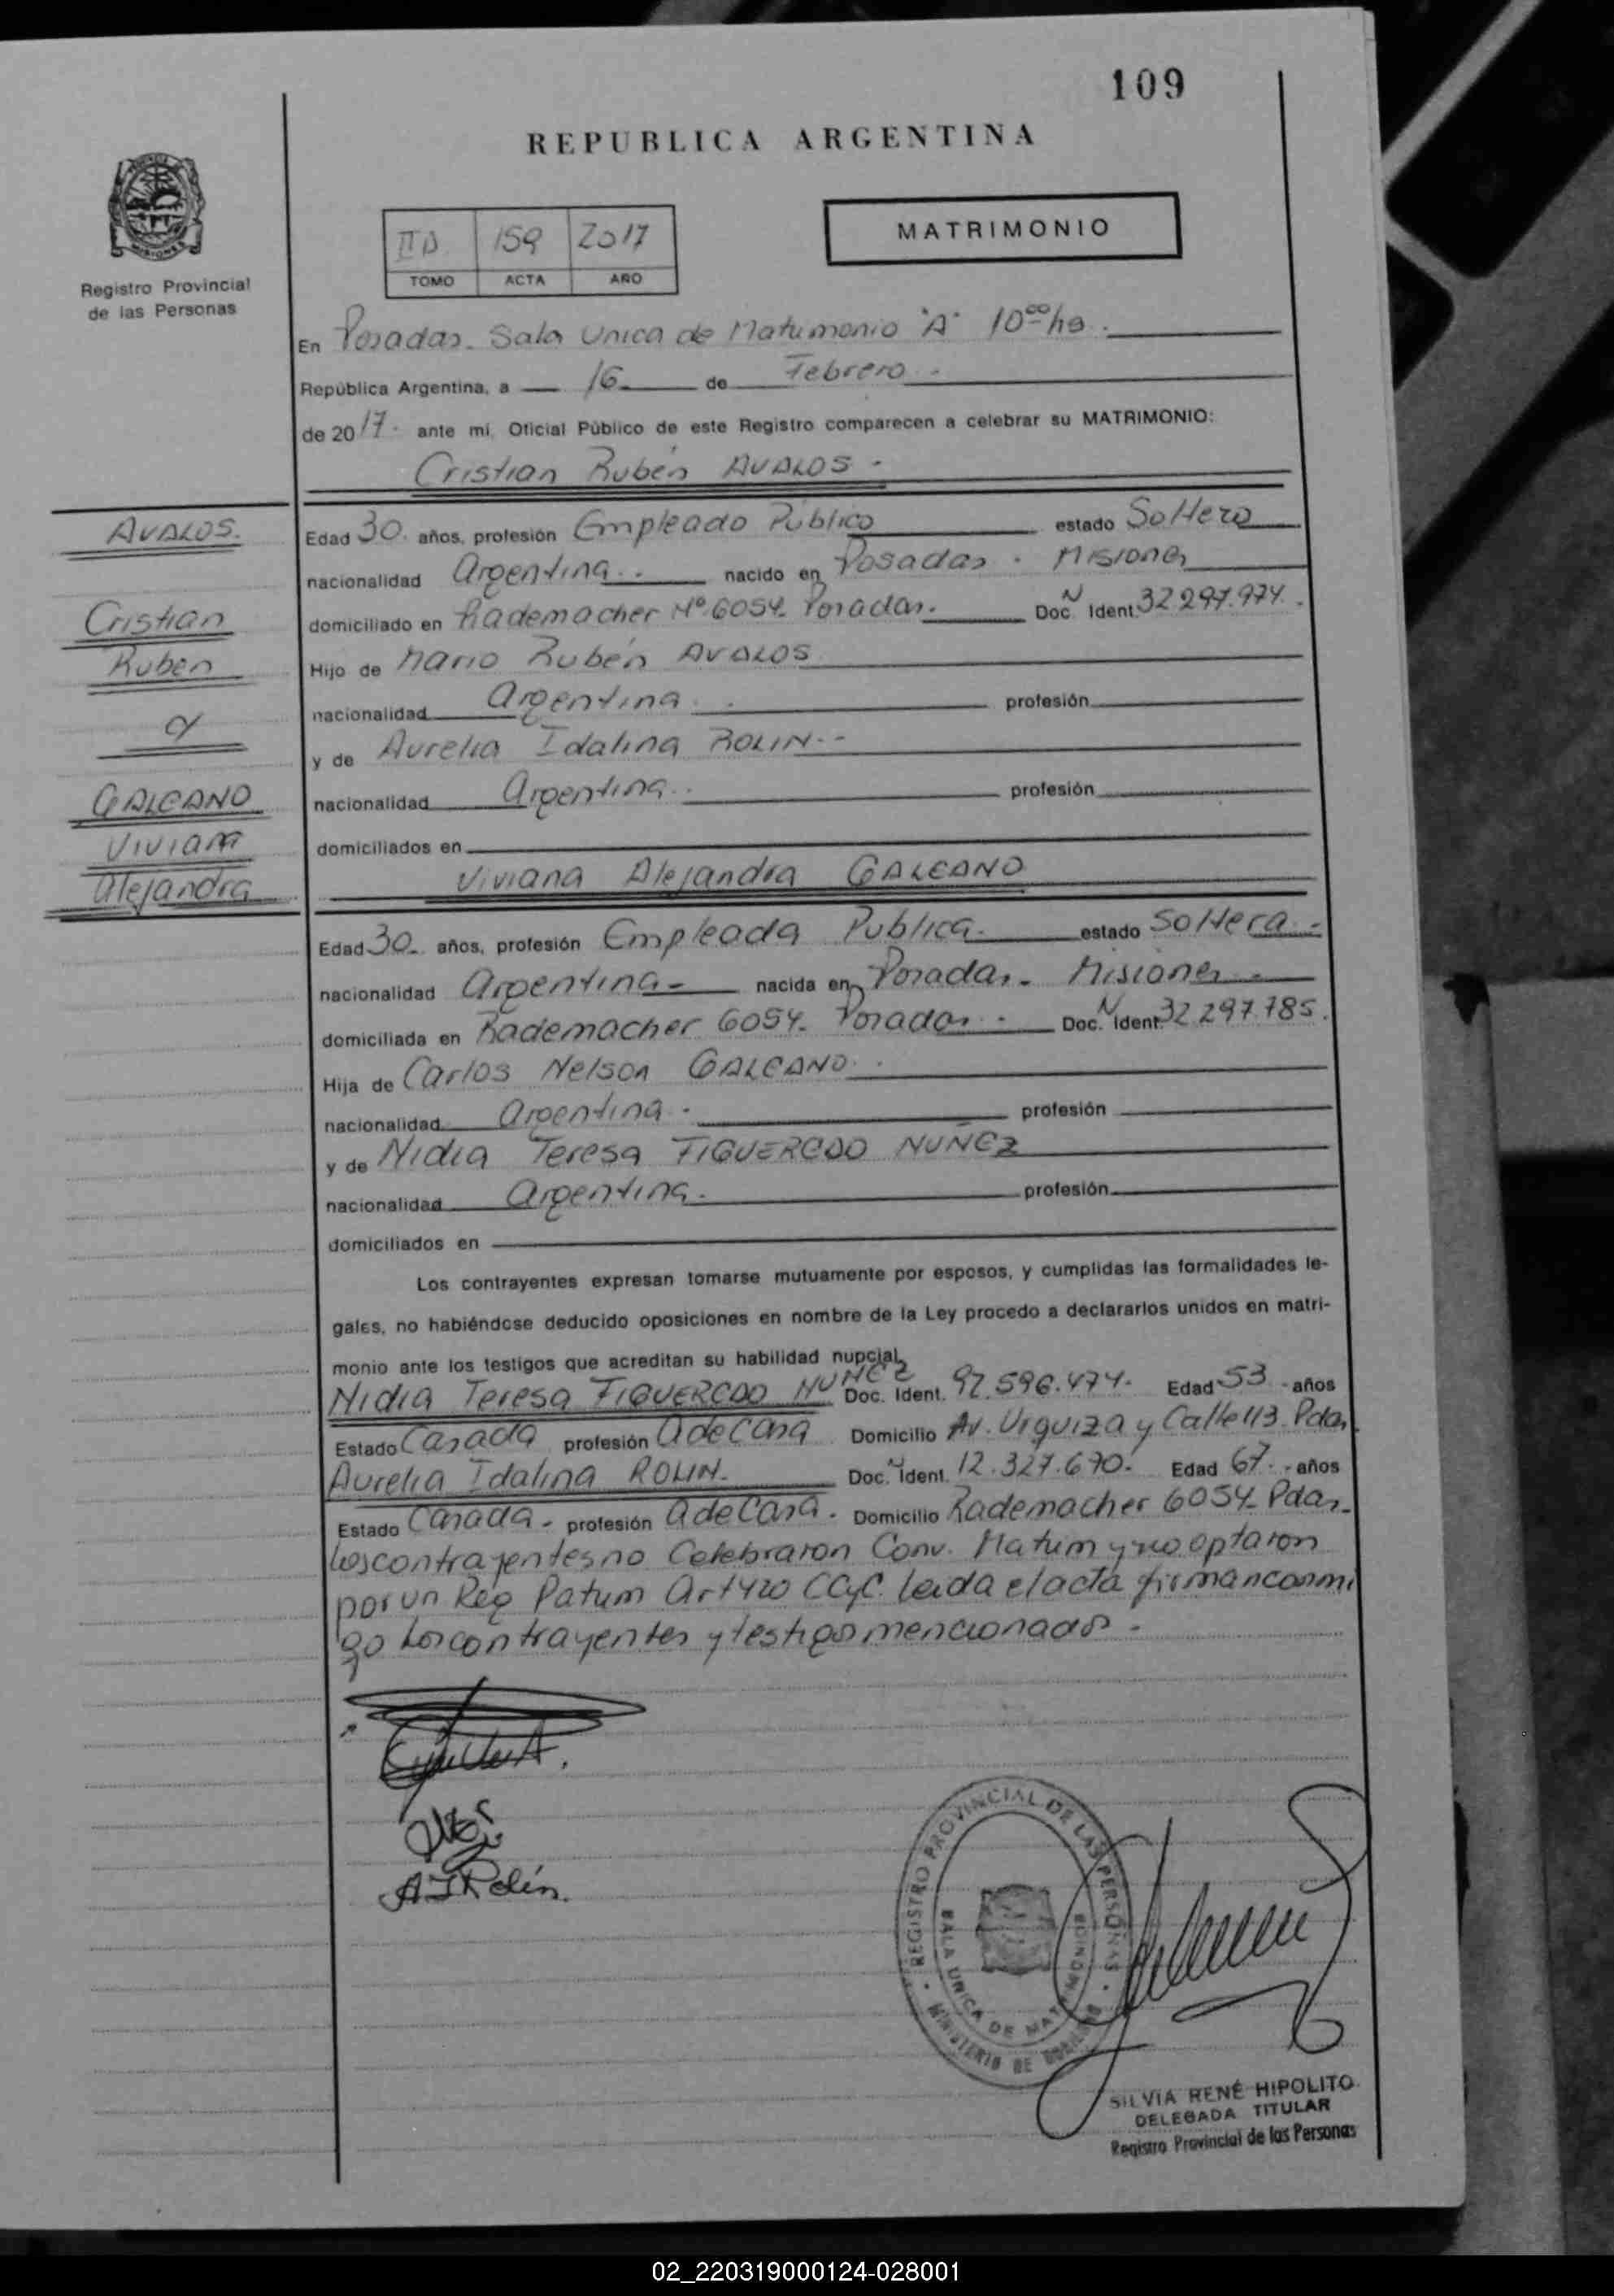 109
REPUBLICA ARGENTINA
Registro Provincial
de las Personas
II D 159 2017
TOMO ACTA AÑO
MATRIMONIO
En Posadas. Sala Unica de Matrimonio "A" 10⁰⁰ hs.
República Argentina, a 16 de Febrero.
de 2017. ante mí, Oficial Público de este Registro comparecen a celebrar su MATRIMONIO:
Cristian Rubén AVALOS.
AVALOS.
Cristian
Ruben
y
GALEANO
Viviana
Alejandra
Edad 30. años, profesión Empleado Público estado Soltero
nacionalidad Argentina.. nacido en Posadas. Misiones
domiciliado en Rademacher Nº 6054. Posadas. Doc. N Ident. 32.297.974.
Hijo de Mario Rubén AVALOS
nacionalidad Argentina. profesión
y de Aurelia Idalina ROLIN.
nacionalidad Argentina.. profesión
domiciliados en
Viviana Alejandra GALEANO
Edad 30. años, profesión Empleada Publica. estado Soltera.
nacionalidad Argentina nacida en Posadas. Misiones.
domiciliada en Rademacher 6054. Posadas. Doc. N Ident. 32.297.785.
Hija de Carlos Nelson GALEANO.
nacionalidad Argentina. profesión
y de Nidia Teresa FIGUEREDO NUÑEZ
nacionalidad Argentina. profesión
domiciliados en
Los contrayentes expresan tomarse mutuamente por esposos, y cumplidas las formalidades le-
gales, no habiéndose deducido oposiciones en nombre de la Ley procedo a declararlos unidos en matri-
monio ante los testigos que acreditan su habilidad nupcial,
Nidia Teresa FIGUEREDO NUÑEZ Doc. Ident. 92.596.474. Edad 53 años
Estado Casada profesión A de Casa Domicilio Av. Urquiza y Calle 113 Pdas.
Aurelia Idalina ROLIN. Doc. N Ident. 12.327.670. Edad 67. años
Estado Casada. profesión A de Casa. Domicilio Rademacher 6054. Pdas.
Los contrayentes no Celebraron Conv. Matrim y no optaron
por un Reg Patrim Art 420 CCyC. Leida el acta firman conmi
go Los contrayentes y testigos mencionados.
A I Rolín.
REGISTRO PROVINCIAL DE LAS PERSONAS
SALA UNICA DE MATRIMONIOS
MINISTERIO DE GOBIERNO
SILVIA RENÉ HIPOLITO
DELEGADA TITULAR
Registro Provincial de las Personas
02_220319000124-028001